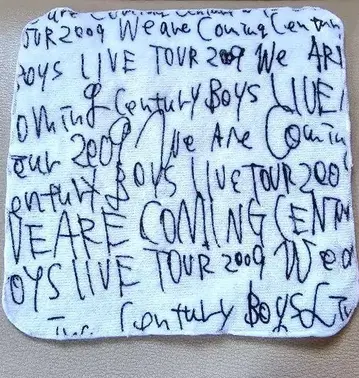 are Coming Century
OUR 2009 We are Coming Century
BOYS LIVE TOUR 2009 We ARE
oming Century Boys LIVE
our 2009 We Are Comin
entury Boys LIVE TOUR 200
WE ARE COMING CENTU
OYS LIVE TOUR 2009 We a
Century BoyS LIV